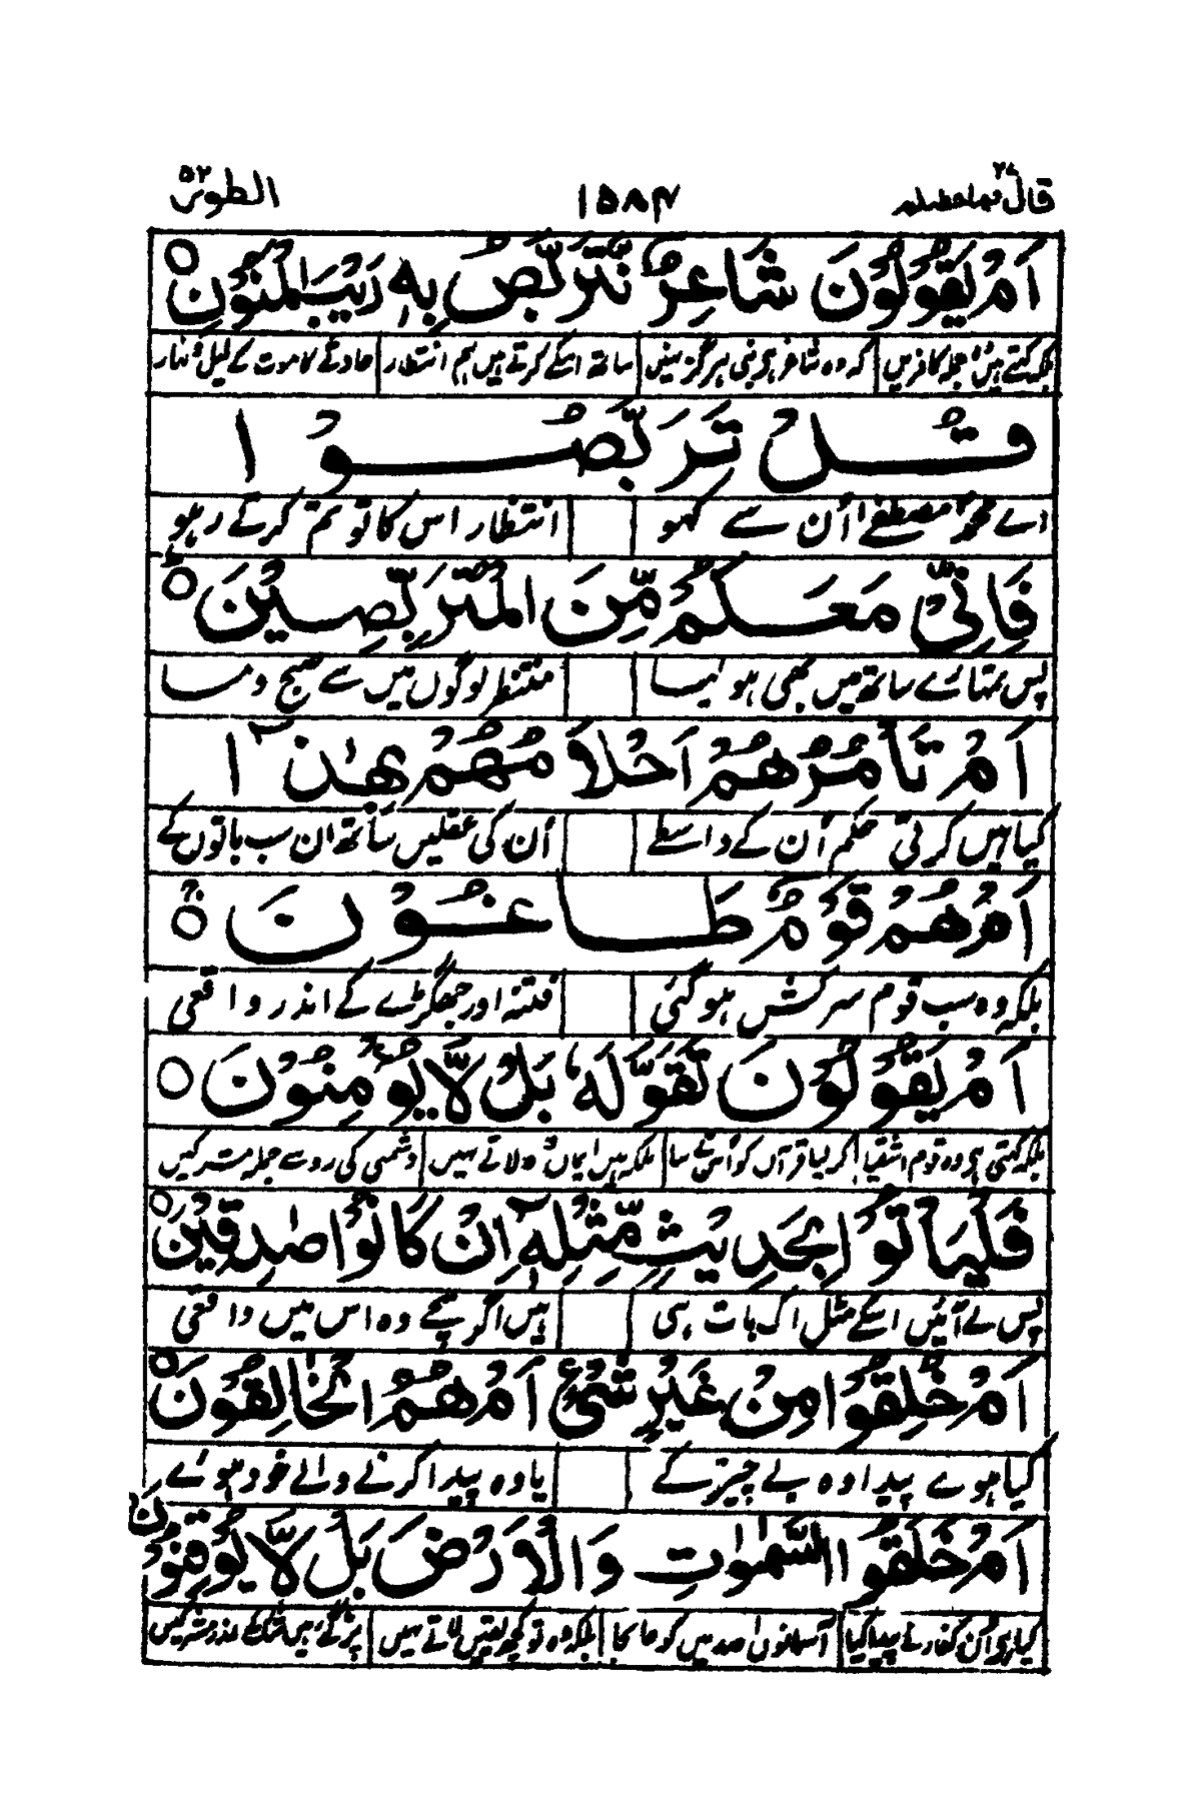 قال فما خطبکم ۲۷ ۱۵۸۴ الطور ۵۲
اَمْ یَقُوْلُوْنَ شَاعِرٌ نَّتَرَبَّصُ بِهٖ رَیْبَ الْمَنُوْنِ ○
بلکہ کہتے ہیں جملہ کافریں کہ وہ شاعر ہی نبی ہرگز نہیں ساتھ اسکے کرتے ہیں ہم انتظار حادثے کا موت کے لیل و نہار
قُلْ تَرَبَّصُوْا
اے محمد مصطفےٰ اُن سے کہو انتظار اس کا تو تم کرتے رہو
فَاِنِّیْ مَعَكُمْ مِّنَ الْمُتَرَبِّصِیْنَ ○
پس تمہارے ساتھ میں بھی ہو لیا منتظر لوگوں میں سے صبح و مسا
اَمْ تَاْمُرُهُمْ اَحْلَامُهُمْ بِهٰذَاۤ
کیا ہیں کرتی حکم اُن کے واسطے اُن کی عقلیں ساتھ ان سب باتوں کے
اَمْ هُمْ قَوْمٌ طَاغُوْنَ ○
بلکہ وہ سب قوم سرکش ہو گئی فتنہ اور جھگڑے کے اندر واقعی
اَمْ یَقُوْلُوْنَ تَقَوَّلَهٗ ۚ بَلْ لَّا یُؤْمِنُوْنَ ○
بلکہ کہتی ہے وہ قوم اشقیا کر لیا قرآں کو اُس نے سا بلکہ ہیں ایماں وہ لاتے نہیں دشمنی کی رو سے جملہ مشرکیں
فَلْیَاْتُوْا بِحَدِیْثٍ مِّثْلِهٖۤ اِنْ كَانُوْا صٰدِقِیْنَ ○
پس لے آئیں اسکے مثل اک بات ہی ہیں اگر سچے وہ اس میں واقعی
اَمْ خُلِقُوْا مِنْ غَیْرِ شَیْءٍ اَمْ هُمُ الْخَالِقُوْنَ ○
کیا ہوے پیدا وہ بے چیز کے یا وہ پیدا کرنے والے خود ہوے
اَمْ خَلَقُوا السَّمٰوٰتِ وَالْاَرْضَ بَلْ لَّا یُوْقِنُوْنَ
کیا ہے اُن کفار نے پیدا کیا آسمانوں زمیں کو بلکہ وہ تو کچھ یقیں لاتے نہیں پڑ گئے ہیں شک کے اندر مشرکیں